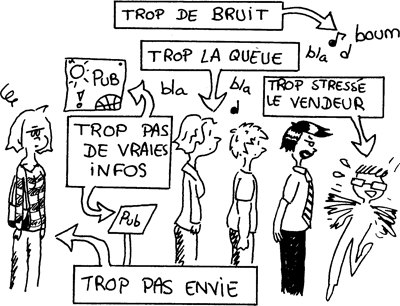 TROP DE BRUIT
boum
TROP LA QUEUE
bla
d
PUB
bla
bla
TROP STRESSÉ
LE VENDEUR
TROP PAS
DE VRAIES
INFOS
Pub
TROP PAS ENVIE